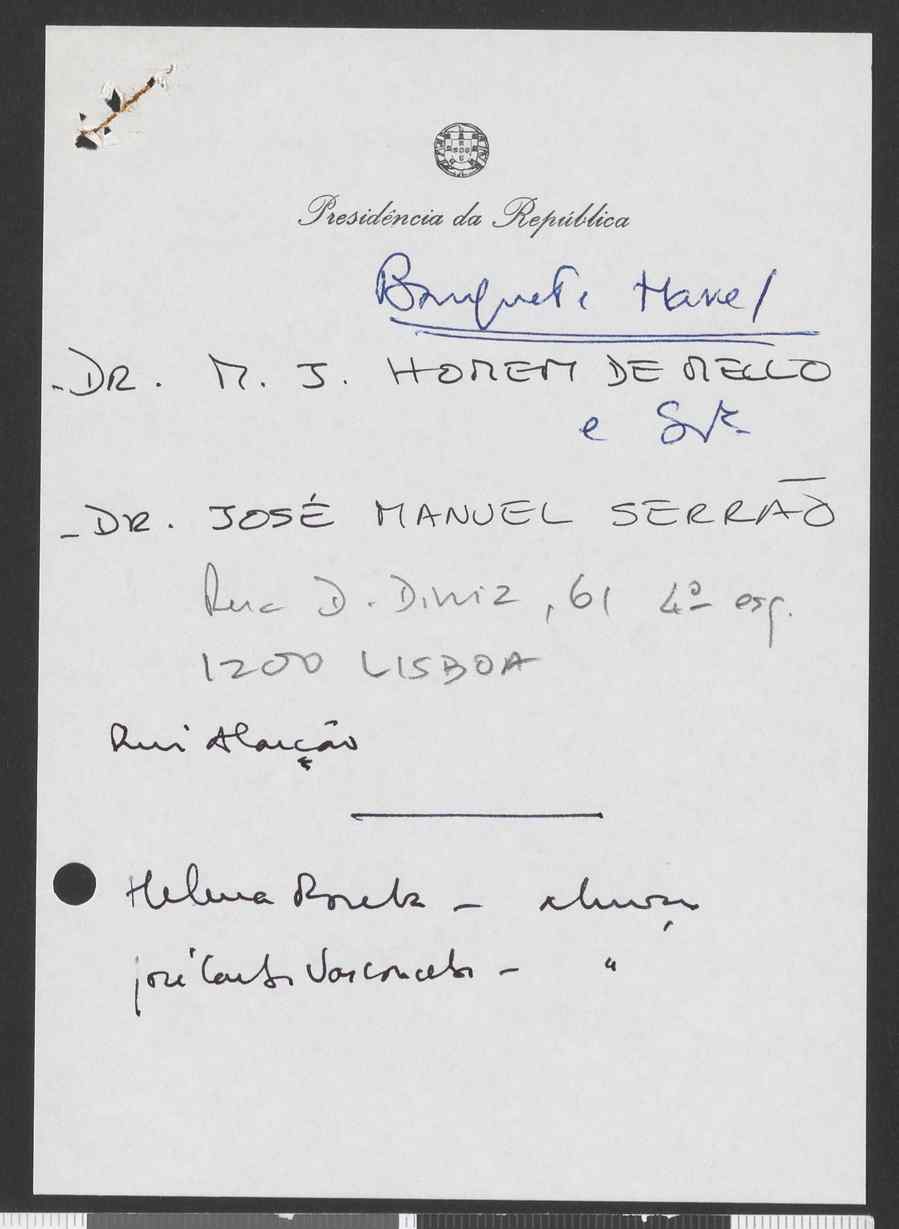 Presidência da República
Banquete Havel
- DR. M. J. HOMEM DE MELLO
e Srª
- DR. JOSÉ MANUEL SERRÃO
Rua D. Diniz, 61 4º esq.
1200 LISBOA
Rui Alarcão
Helena Roseta - almoço
José Carlos Vasconcelos - "